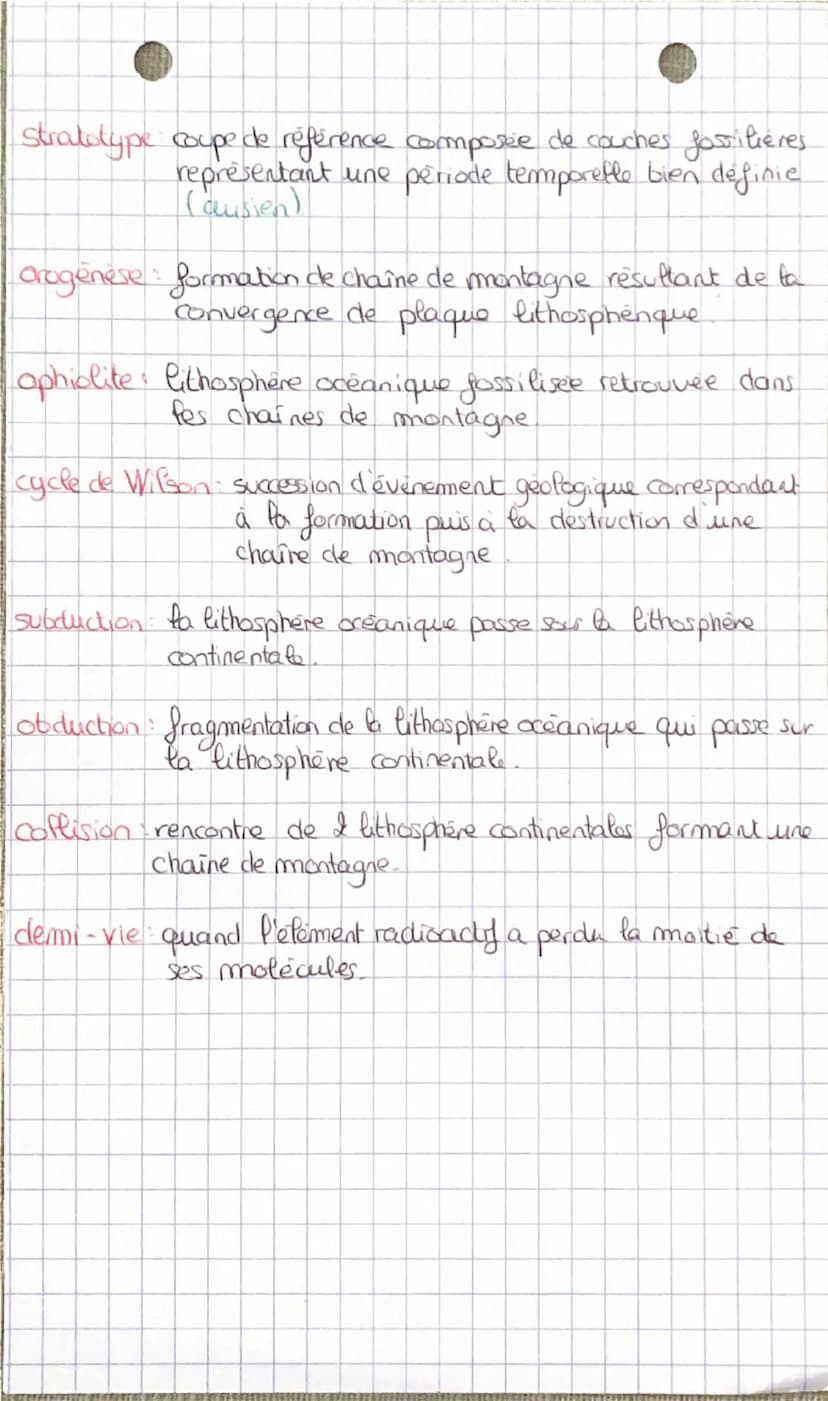 stratotype coupe de référence composée de couches fossilières
représentant une période temporelle bien définie
(ausien)
orogénèse : formation de chaîne de montagne résultant de la
convergence de plaque lithosphérique
ophiolite : lithosphère océanique fossilisée retrouvée dans
les chaînes de montagne
cycle de Wilson : succession d'événement géologique correspondant
à la formation puis à la destruction d'une
chaîne de montagne.
subduction : la lithosphère océanique passe sous la lithosphère
continentale.
obduction : fragmentation de la lithosphère océanique qui passe sur
la lithosphère continentale.
collision : rencontre de 2 lithosphère continentales formant une
chaîne de montagne.
demi-vie : quand l'élément radioactif a perdu la moitié de
ses molécules.